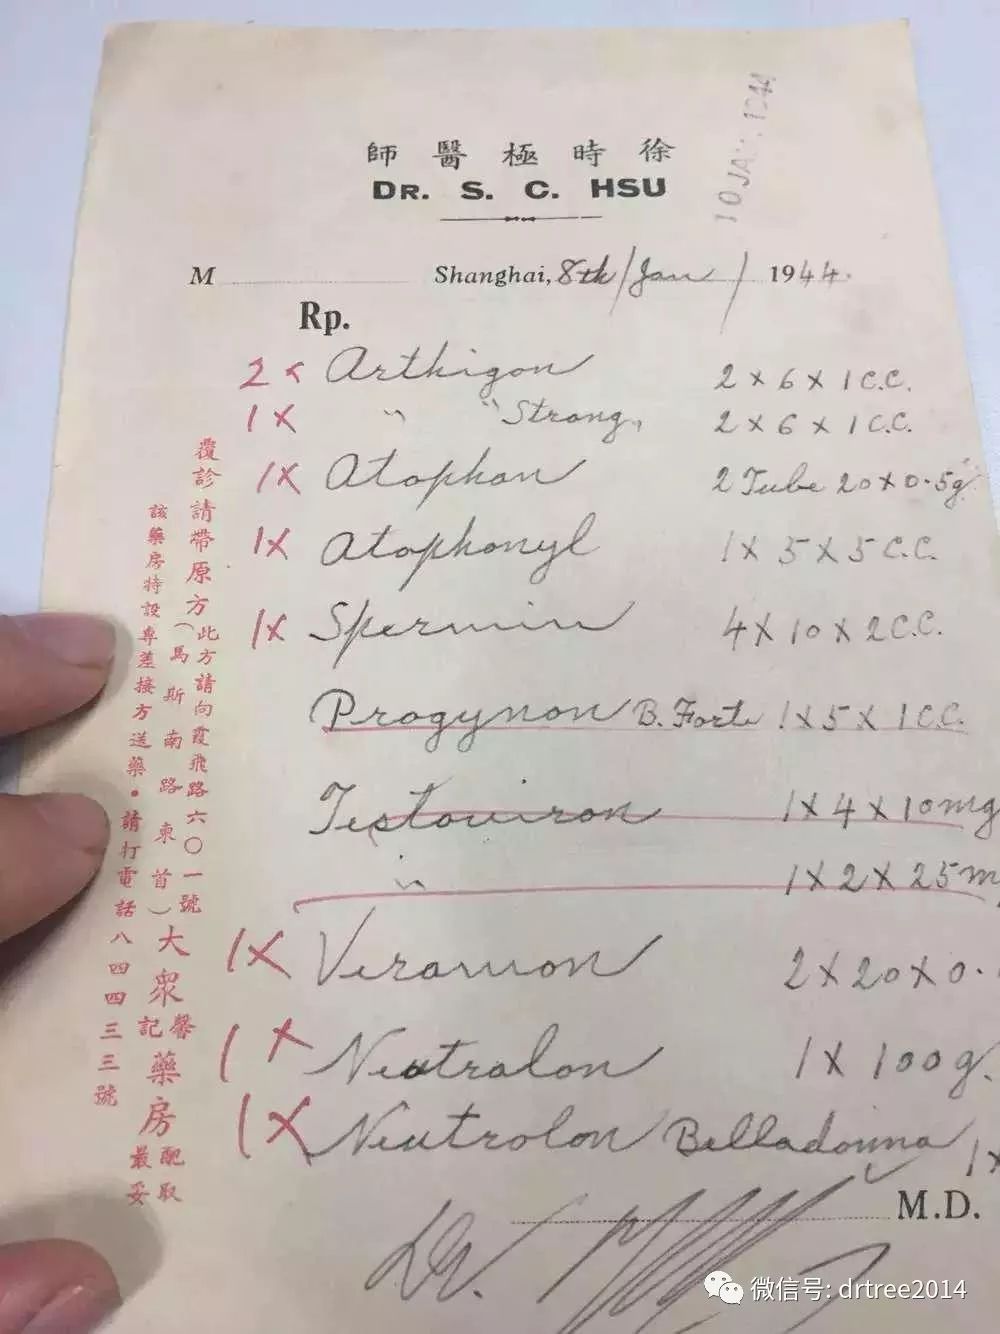 10 JAN. 1944
師醫極時徐
DR. S. C. HSU
M Shanghai, 8th/Jan/1944.
Rp.
2 x Arthigon 2 x 6 x 1 C.C.
1 X " " Strong, 2 x 6 x 1 C.C.
1X Atophan 2 Tube 20 x 0.5g.
1X Atophanyl 1 x 5 x 5 C.C.
1X Spermin 4 X 10 x 2 C.C.
Progynon B. Forte 1 x 5 x 1 C.C.
Testoviron 1 x 4 x 10mg
" 1 x 2 x 25m
1X Veramon 2 x 20 x 0.
1 X Neutralon 1 X 100g.
1X Neutrolon Belladonna 1x
Dr.
M.D.
覆診請帶原方
此方請向霞飛路六〇一號
（馬斯南路東首）
大眾藥房
馨記
配取最妥
該藥房特設專差接方送藥・請打電話八四四三三號
微信号: drtree2014